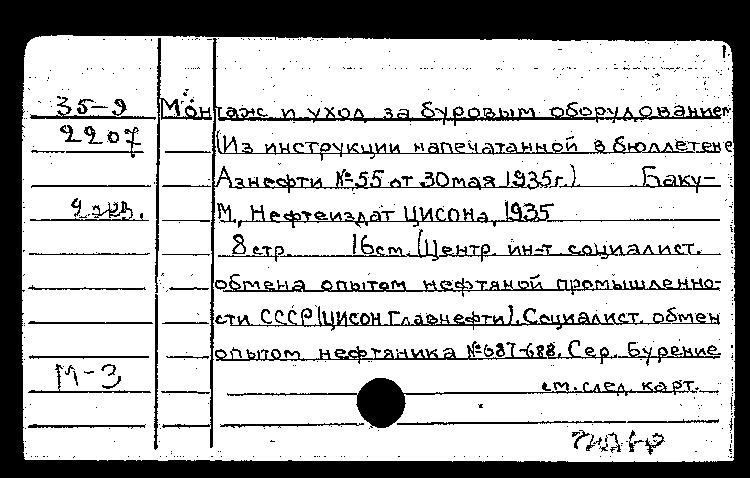 35-9 Монтаж и уход за буровым оборудованием
2207 (Из инструкции напечатанной в бюллетене
Азнефти №55 от 30 мая 1935г.) Баку-
2 экз. М., Нефтеиздат ЦИСОНа, 1935
8 стр. 16 см. (Центр. ин-т социалист.
обмена опытом нефтяной промышленно-
сти СССР (ЦИСОН Главнефти). Социалист. обмен
опытом нефтяника №687-688. Сер. Бурение
М-3 см. след. карт.